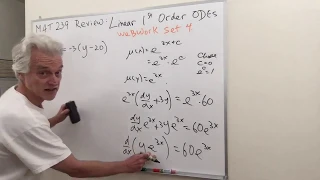 MAT 239 Review: Linear 1st Order ODEs
webwork set 4
= -3(y-20)
μ(x) = e^{3x+C}
= e^{3x}·e^C
Choose C=0 e^0=1
μ(x) = e^{3x}
e^{3x}(dy/dx + 3y) = e^{3x}·60
dy/dx e^{3x} + 3y e^{3x} = 60e^{3x}
d/dx (y e^{3x}) = 60e^{3x}